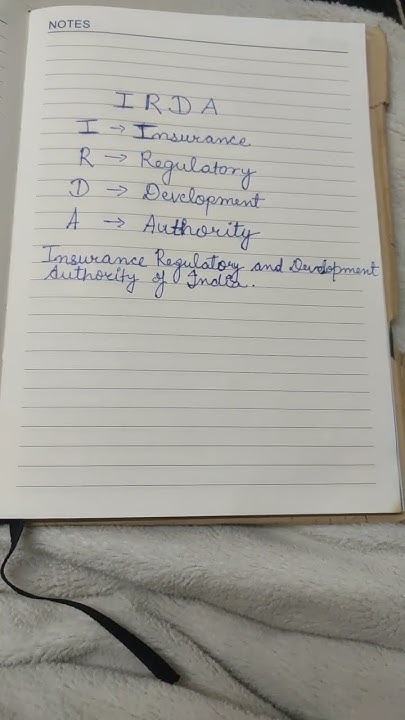 NOTES
IRDA
I → Insurance
R → Regulatory
D → Development
A → Authority
Insurance Regulatory and Development
Authority of India.